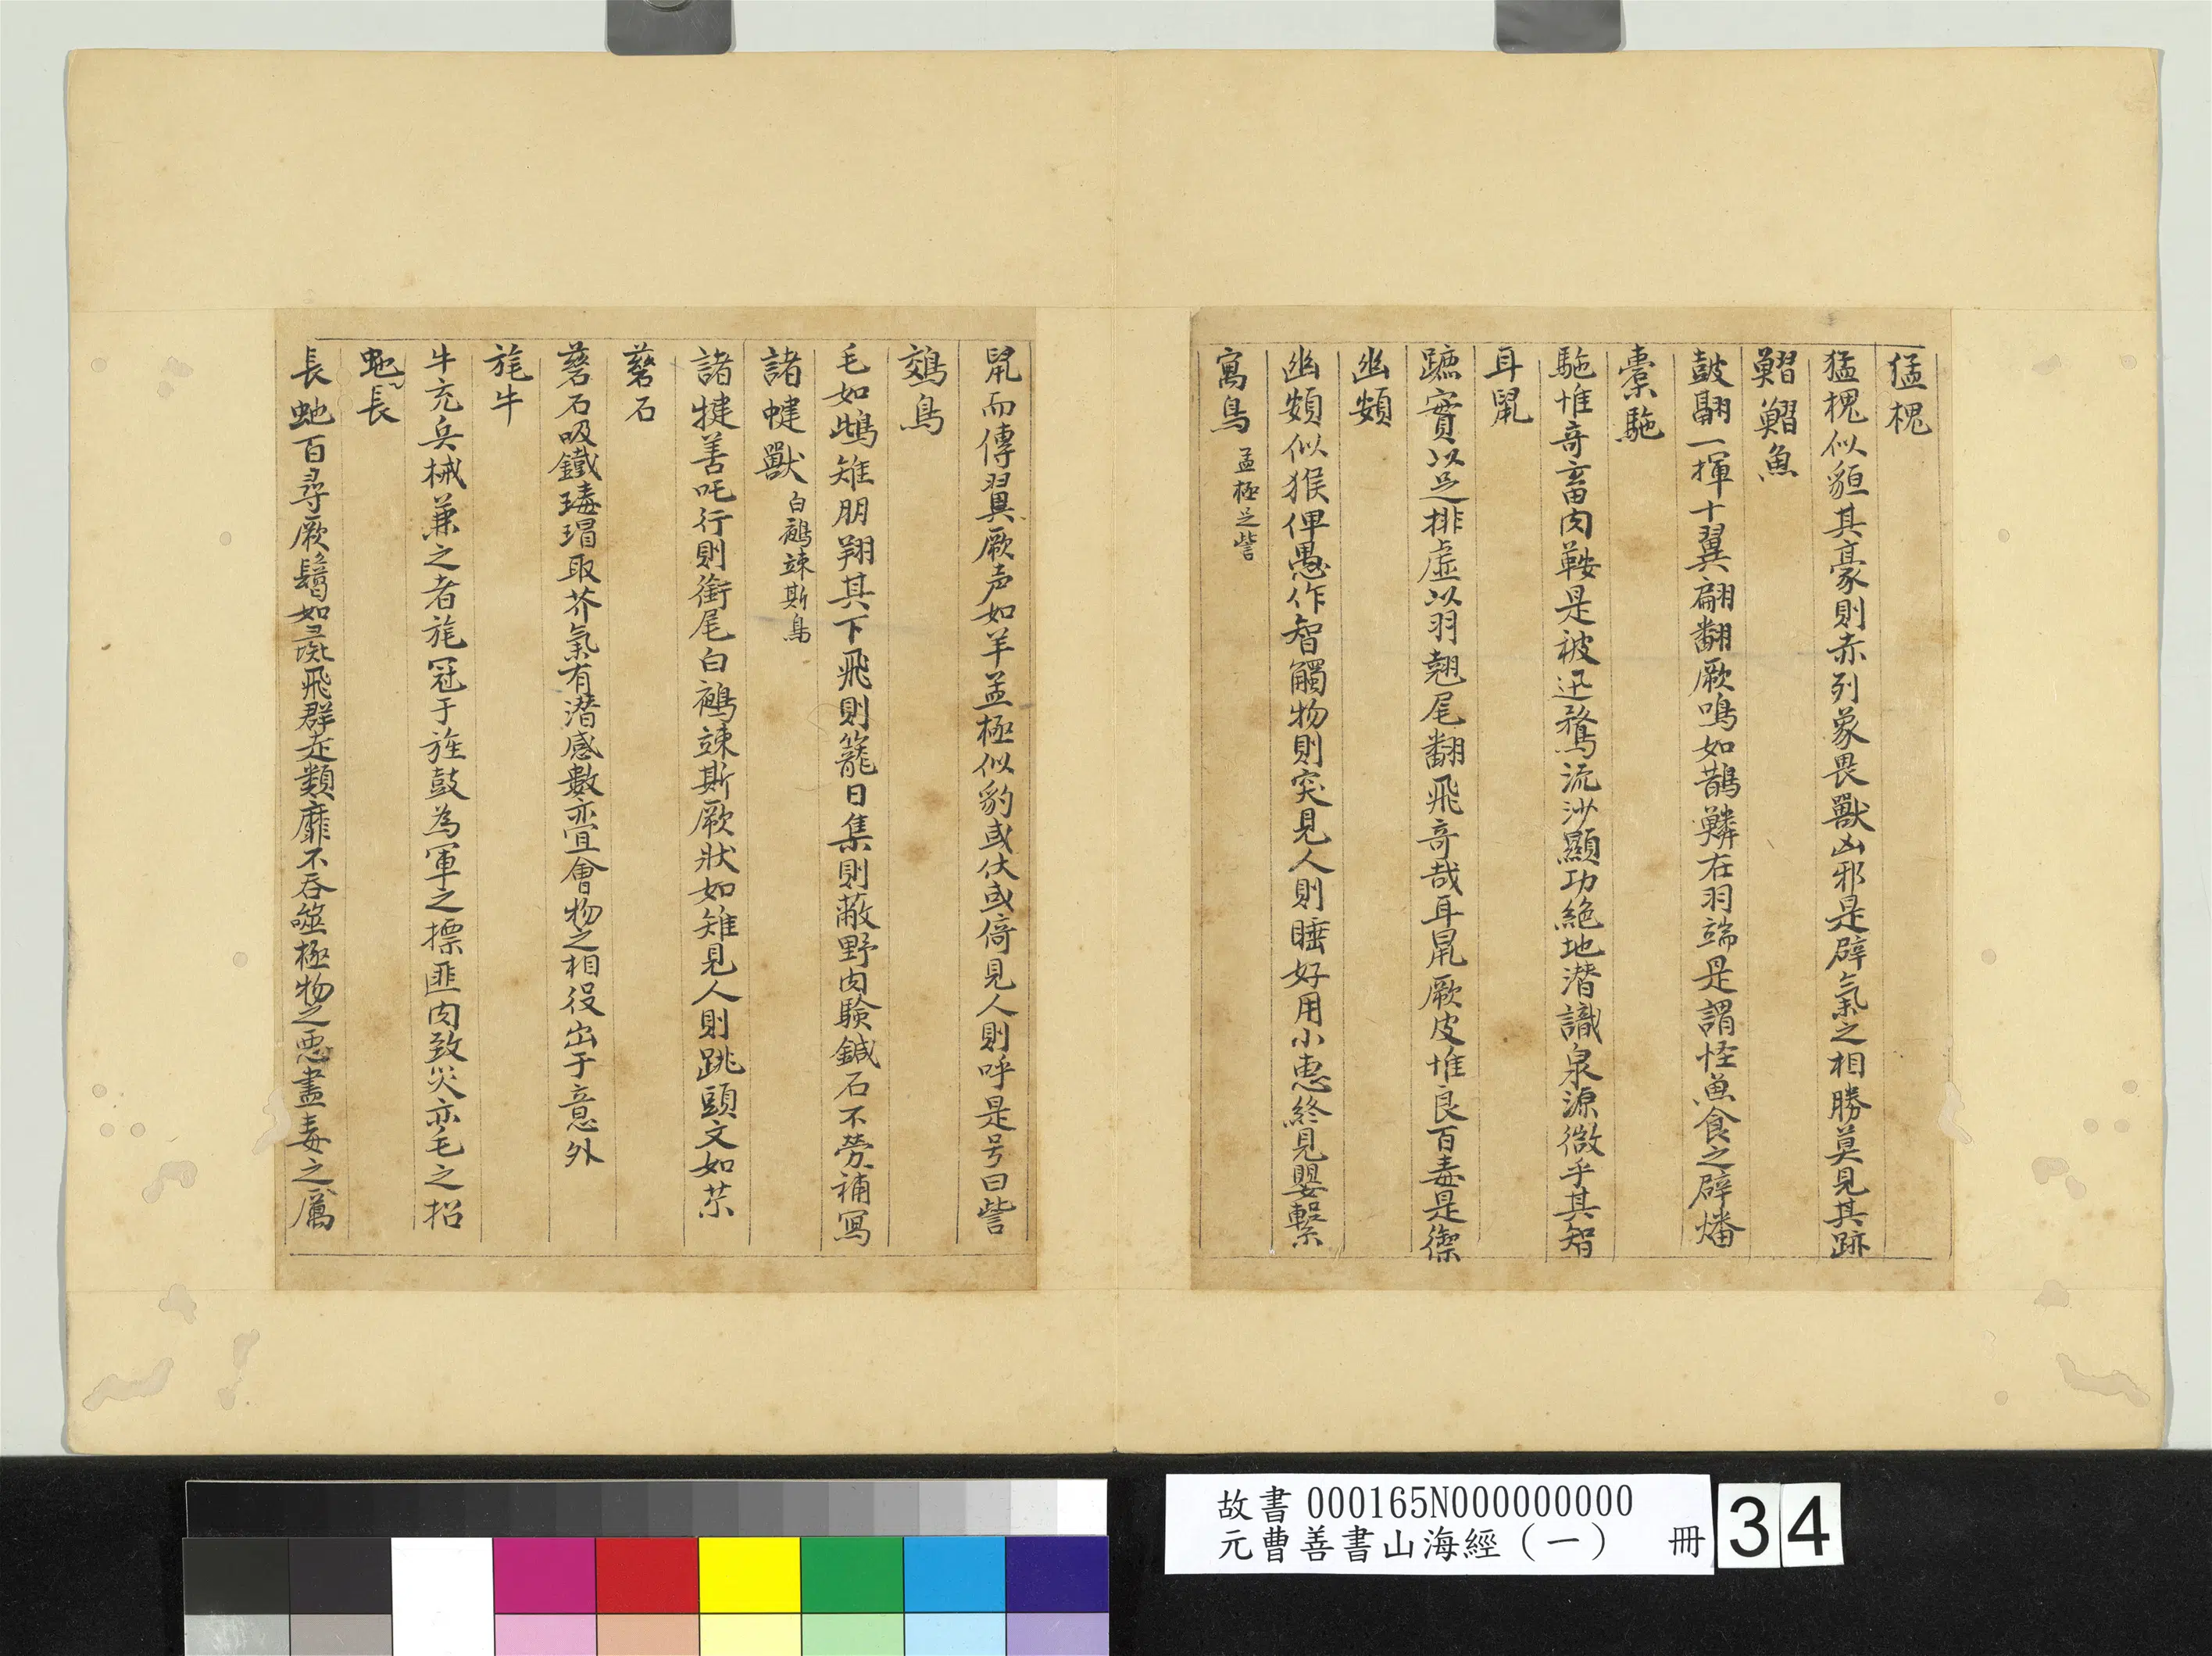 猛槐
猛槐似貆其豪則赤列象畏獸凶邪是辟氣之相勝莫見其跡
鰼鰼魚
鼓翮一揮十翼翩翻厥鳴如鵲鱗在羽端是謂怪魚食之辟燔
橐駞
駞惟奇畜肉鞍是被迅騖流沙顯功絶地潜識泉源微乎其智
耳鼠
蹠實以足排虛以羽翹尾翻飛奇哉耳鼠厥皮惟良百毒是禦
幽頞
幽頞似猴俾愚作智觸物則突見人則睡好用小惠終見嬰繫
寓鳥 孟極足訾
鼠而傳翼厥声如羊孟極似豹或伏或倚見人則呼是号曰訾
鵁鳥
毛如鴟雉朋翔其下飛則籠日集則蔽野肉驗鍼石不勞補寫
諸犍獸 白鵺竦斯鳥
諸犍善吒行則銜尾白鵺竦斯厥狀如雉見人則跳頭文如
礠石
礠石吸鐵瑇瑁取芥氣有潜感數亦㝠會物之相役出于意外
旄牛
牛充兵械兼之者旄冠于旌鼓為軍之標匪肉致災亦毛之招
虵長
長虵百尋厥鬛如彘飛群走類靡不吞噬極物之惡盡毒之厲
故書 000165N000000000
元曹善書山海經（一） 冊
34